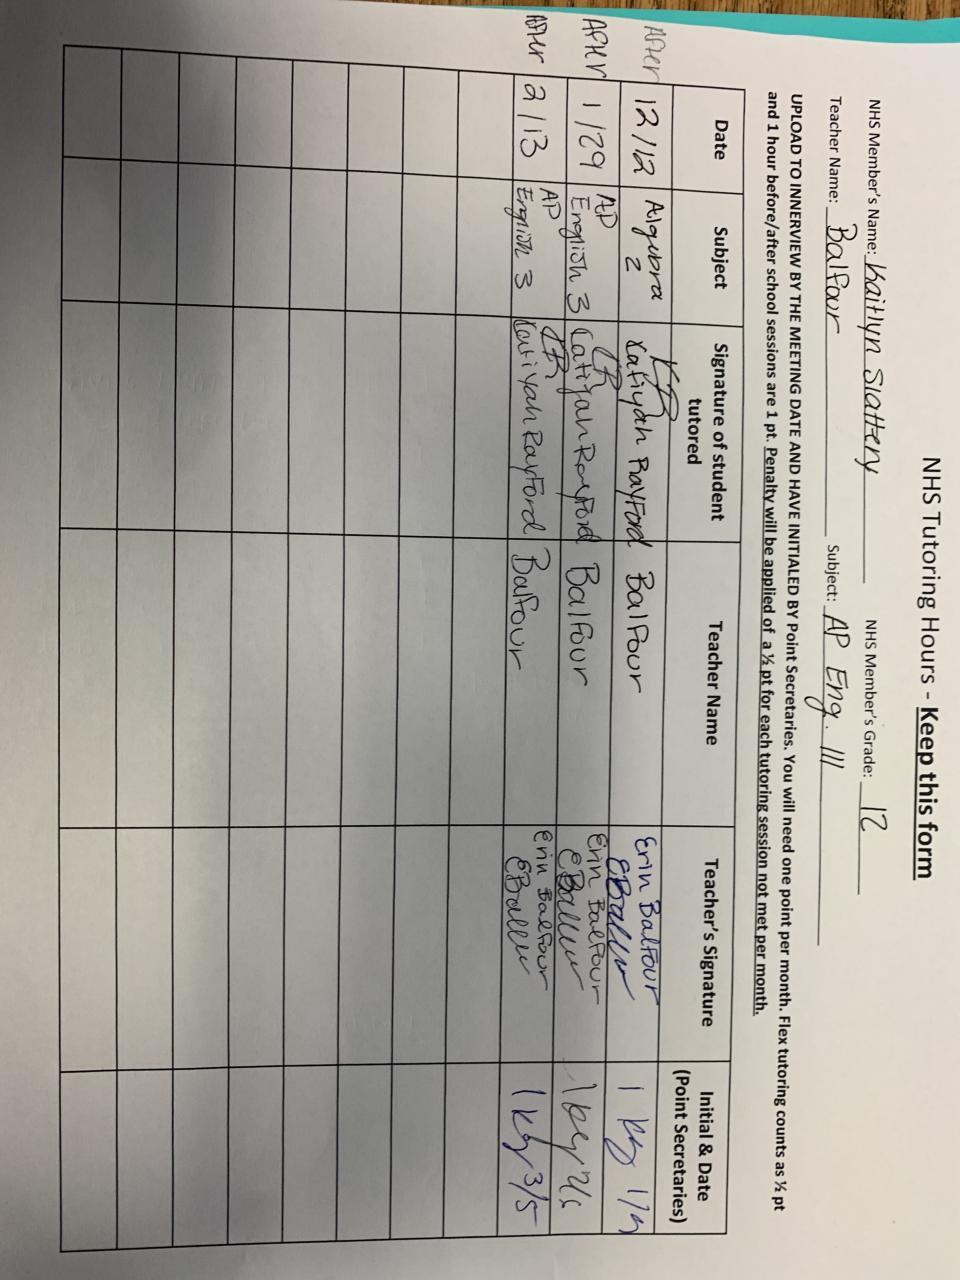 NHS Tutoring Hours - Keep this form
NHS Member's Name: Kaitlyn Slattery NHS Member's Grade: 12
Teacher Name: Balfour Subject: AP Eng. III
UPLOAD TO INNERVIEW BY THE MEETING DATE AND HAVE INITIALED BY Point Secretaries. You will need one point per month. Flex tutoring counts as ½ pt
and 1 hour before/after school sessions are 1 pt. Penalty will be applied of a ½ pt for each tutoring session not met per month.
Date Subject Signature of student tutored Teacher Name Teacher's Signature Initial & Date (Point Secretaries)
After 12/12 Algebra 2 KR Katiyah Rayford Balfour Erin Balfour EBalfour 1
After 1/29 AP English 3 Katiyah Rayford Balfour Erin Balfour EBalfour 1
After 2/13 AP English 3 Katiyah Rayford Balfour Erin Balfour EBalfour 1 3/5